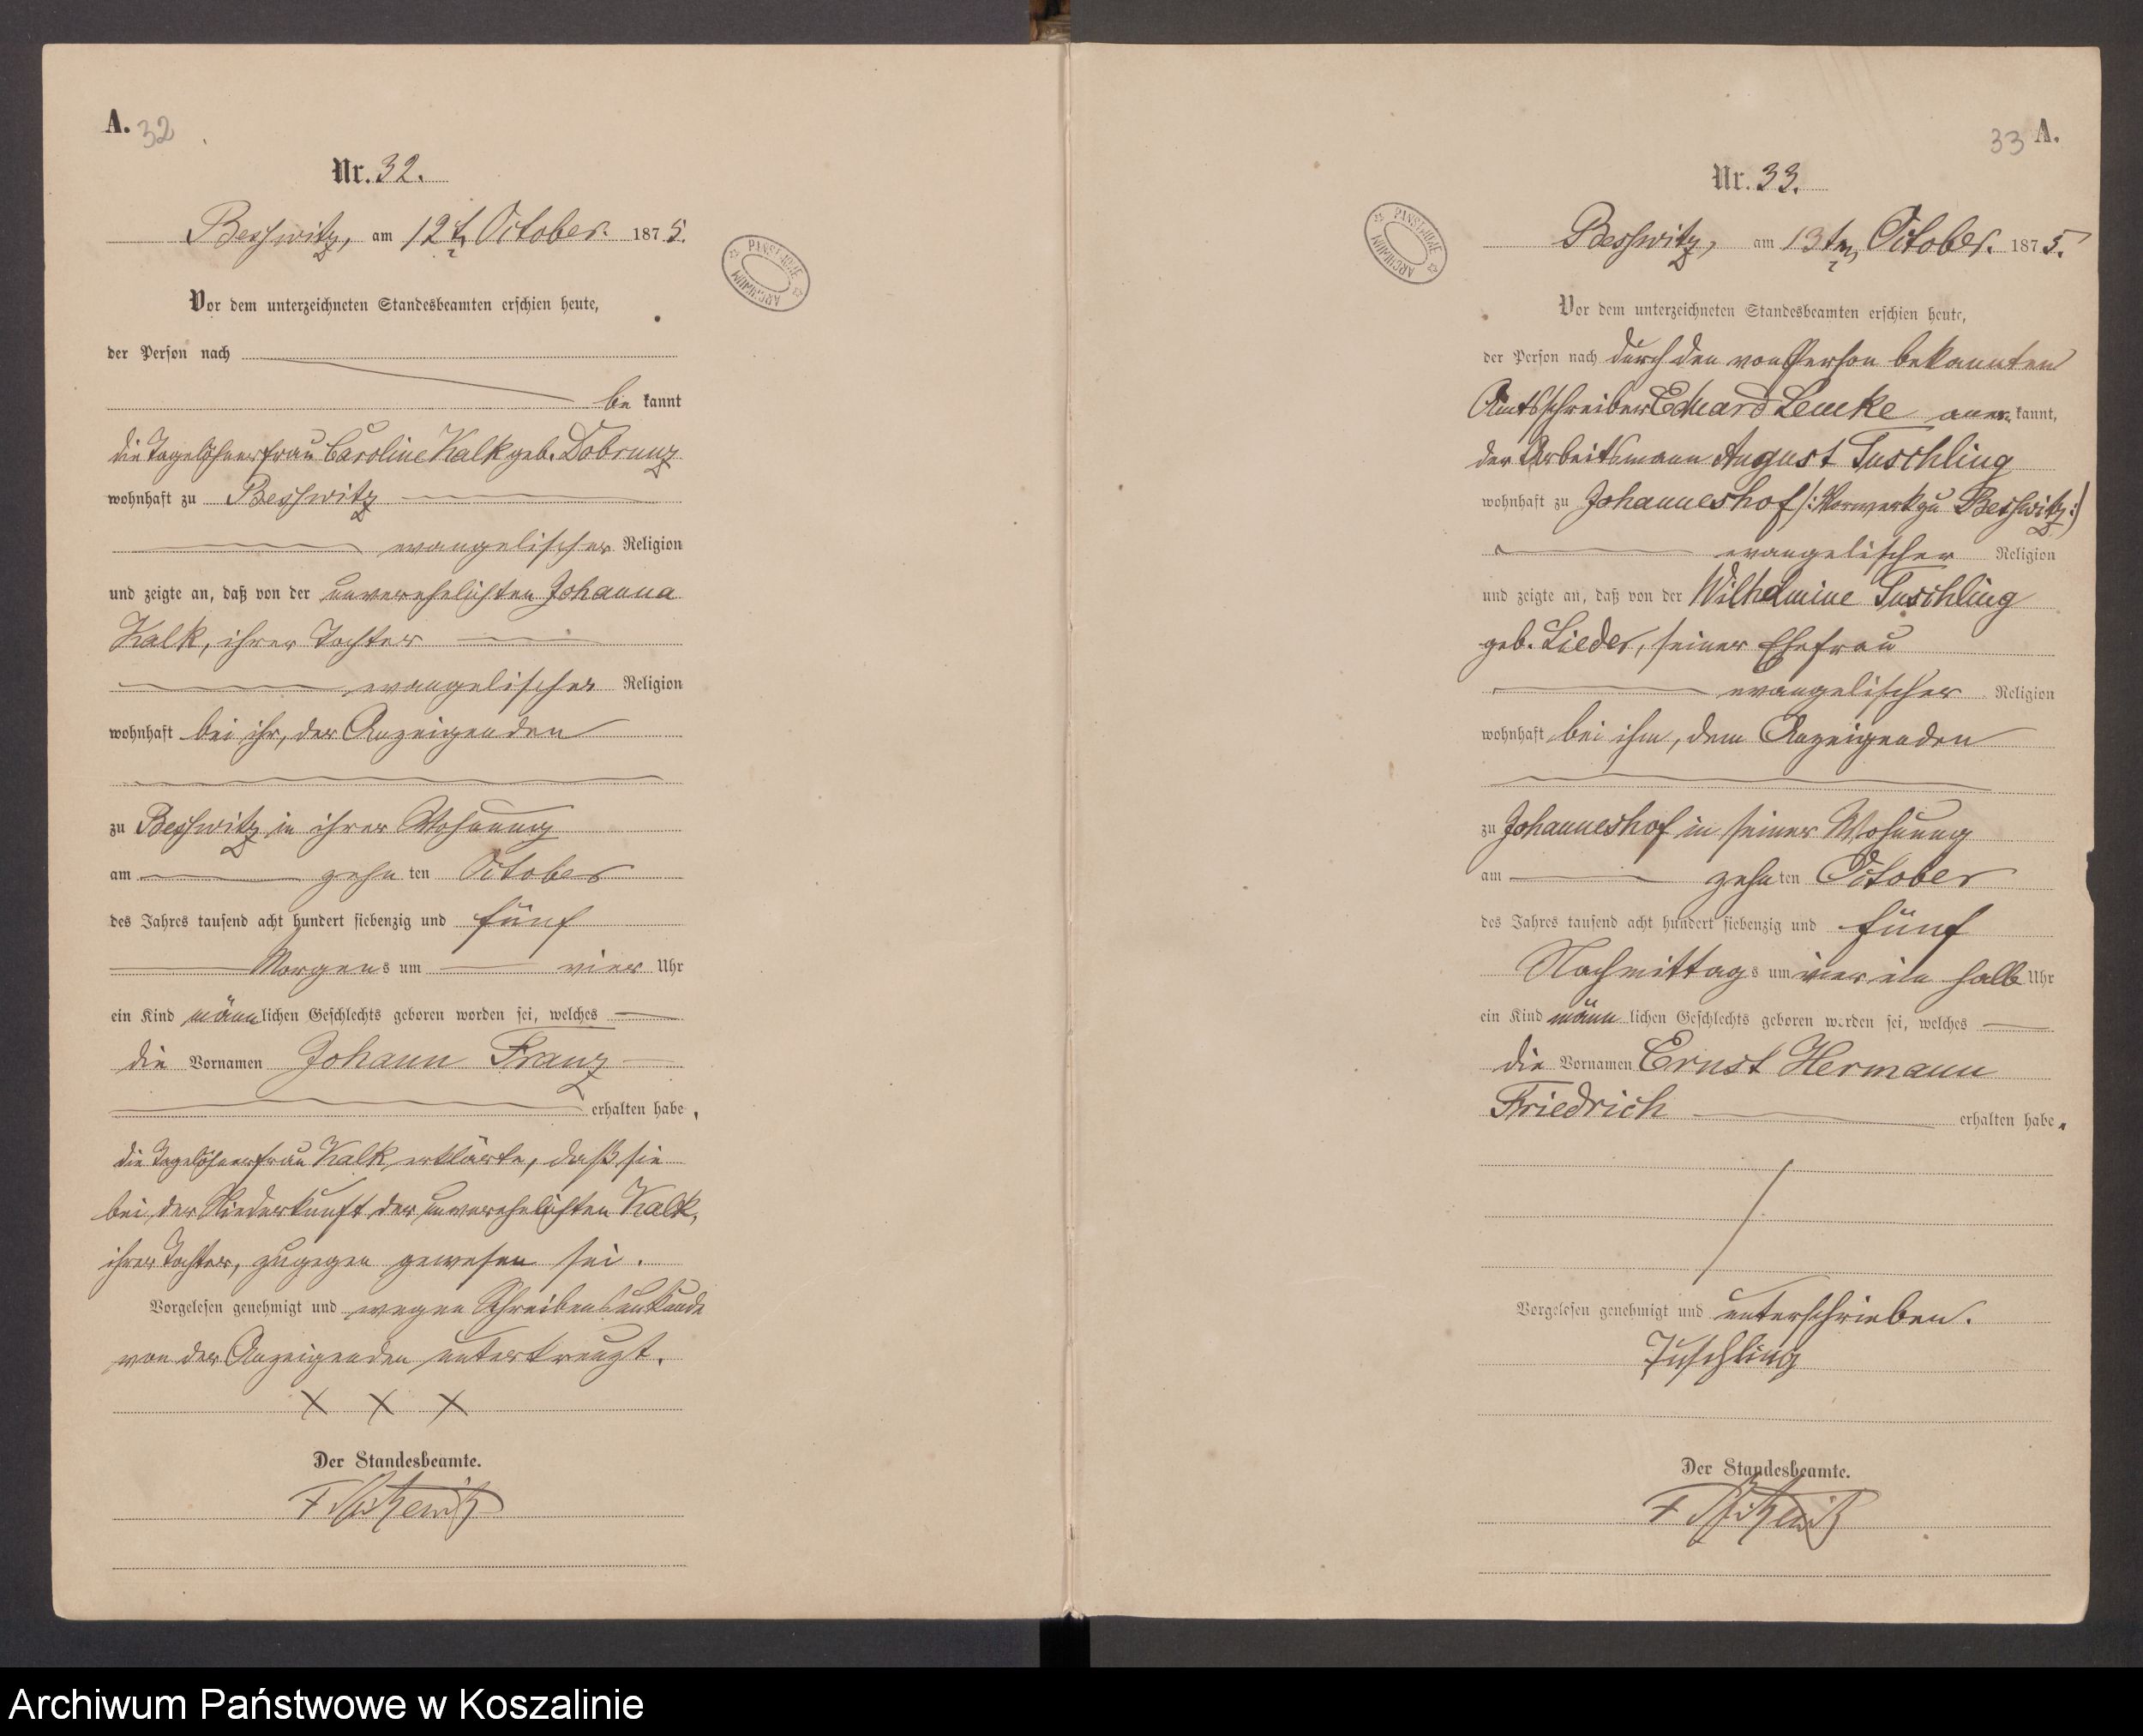 A. 32
Nr. 32.
Besswitz, am 12t October. 1875.
PAŃSTWOWE ARCHIWUM
Vor dem unterzeichneten Standesbeamten erschien heute,
der Person nach
be kannt
die Tagelöhnerfrau Caroline Kalk geb. Dobrunz
wohnhaft zu Besswitz
evangelischer Religion
und zeigte an, daß von der unverehelichten Johanna
Kalk, ihrer Tochter
evangelischer Religion
wohnhaft bei ihr, der Anzeigenden
zu Besswitz in ihrer Wohnung
am zehn ten October
des Jahres tausend acht hundert siebenzig und fünf
Morgens um vier Uhr
ein Kind männlichen Geschlechts geboren worden sei, welches
die Vornamen Johann Franz
erhalten habe,
die Tagelöhnerfrau Kalk erklärte, daß sie
bei der Niederkunft der unverehelichten Kalk,
ihrer Tochter, zugegen gewesen sei.
Vorgelesen genehmigt und wegen Schreibensunkunde
von der Anzeigenden unterkreuzt.
X X X
Der Standesbeamte.
33 A.
Nr. 33.
PAŃSTWOWE ARCHIWUM
Besswitz, am 13ten October. 1875.
Vor dem unterzeichneten Standesbeamten erschien heute,
der Person nach durch den von Person bekannten
Amtsschreiber Eduard Lemke aner kannt,
der Arbeitsmann August Tuschling
wohnhaft zu Johanneshof /: Vorwerk zu Besswitz :/
evangelischer Religion
und zeigte an, daß von der Wilhelmine Tuschling
geb. Lieder, seiner Ehefrau
evangelischer Religion
wohnhaft bei ihm, dem Anzeigenden
zu Johanneshof in seiner Wohnung
am zehn ten October
des Jahres tausend acht hundert siebenzig und fünf
Nachmittags um vier ein halb Uhr
ein Kind männ lichen Geschlechts geboren worden sei, welches
die Vornamen Ernst Hermann
Friedrich erhalten habe.
Vorgelesen genehmigt und unterschrieben.
Tuschling
Der Standesbeamte.
Archiwum Państwowe w Koszalinie